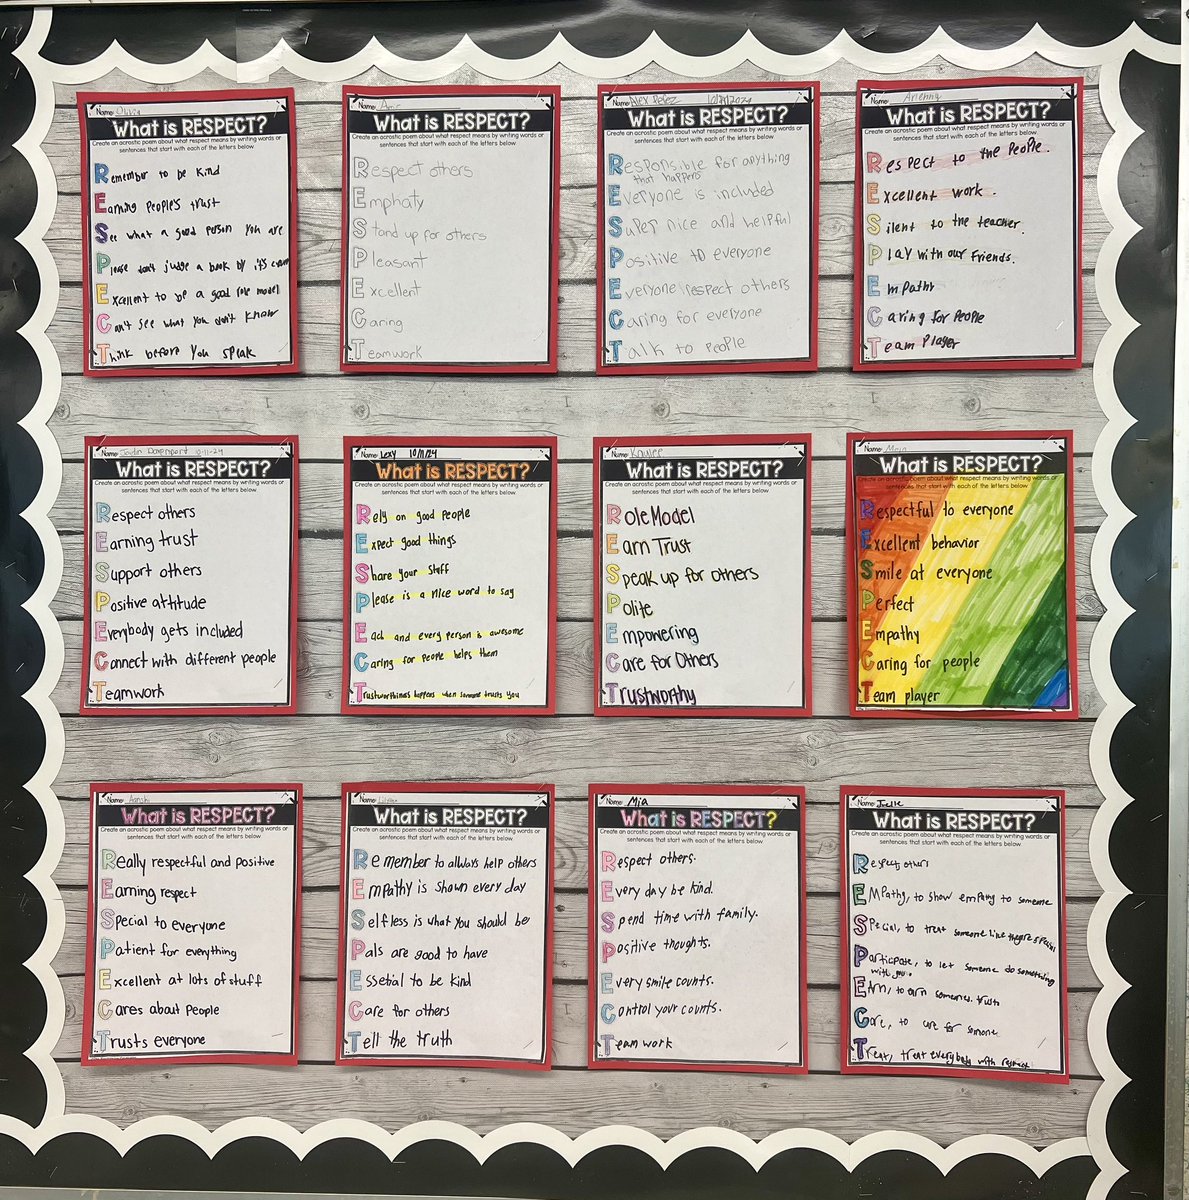 Name: Olivia
What is RESPECT?
Create an acrostic poem about what respect means by writing words or
sentences that start with each of the letters below
Remember to be kind
Earning people's trust
See what a good person you are
Please don't judge a book by it's cover
Excellent to be a good role model
Can't see what you don't know
Think before you speak
Name:
What is RESPECT?
Create an acrostic poem about what respect means by writing words or
sentences that start with each of the letters below
Respect others
Emphaty
Stand up for others
Pleasant
Excellent
Caring
Teamwork
Name: Alex Perez
What is RESPECT?
Create an acrostic poem about what respect means by writing words or
sentences that start with each of the letters below
Responsible for anything
that happens
Everyone is included
Super nice and helpful
Positive to everyone
Everyone respect others
Caring for everyone
Talk to people
Name: Arienna
What is RESPECT?
Create an acrostic poem about what respect means by writing words or
sentences that start with each of the letters below
Respect to the people.
Excellent work.
Silent to the teacher.
Play with our friends.
Empathy
Caring for people
Team player
Name: Davenport 10-11-24
What is RESPECT?
Create an acrostic poem about what respect means by writing words or
sentences that start with each of the letters below
Respect others
Earning trust
Support others
Positive attitude
Everybody gets included
Connect with different people
Teamwork
Name: Lexy 10/11/24
What is RESPECT?
Create an acrostic poem about what respect means by writing words or
sentences that start with each of the letters below
Rely on good people
Expect good things
Share your stuff
Please is a nice word to say
Each and every person is awesome
Caring for people helps them
Trustworthiness happens when someone trusts you
Name: Kaylee
What is RESPECT?
Create an acrostic poem about what respect means by writing words or
sentences that start with each of the letters below
Role Model
Earn Trust
Speak up for others
Polite
Empowering
Care for Others
Trustworthy
Name:
What is RESPECT?
Create an acrostic poem about what respect means by writing words or
sentences that start with each of the letters below
Respectful to everyone
Excellent behavior
Smile at everyone
Perfect
Empathy
Caring for people
Team player
Name: Aanshi
What is RESPECT?
Create an acrostic poem about what respect means by writing words or
sentences that start with each of the letters below
Really respectful and positive
Earning respect
Special to everyone
Patient for everything
Excellent at lots of stuff
Cares about people
Trusts everyone
Name:
What is RESPECT?
Create an acrostic poem about what respect means by writing words or
sentences that start with each of the letters below
Remember to allways help others
Empathy is shown every day
Selfless is what you should be
Pals are good to have
Essetial to be kind
Care for others
Tell the truth
Name: Mia
What is RESPECT?
Create an acrostic poem about what respect means by writing words or
sentences that start with each of the letters below
Respect others.
Every day be kind.
Spend time with family.
Positive thoughts.
Every smile counts.
Control your counts.
Team work
Name: Joelle
What is RESPECT?
Create an acrostic poem about what respect means by writing words or
sentences that start with each of the letters below
Respect, others
Empathy, to show empathy to someone
Special, to treat someone like they're special
Participate, to let someone do something
with you
Earn, to earn someones trust
Care, to care for someone
Treat, treat everybody with respect